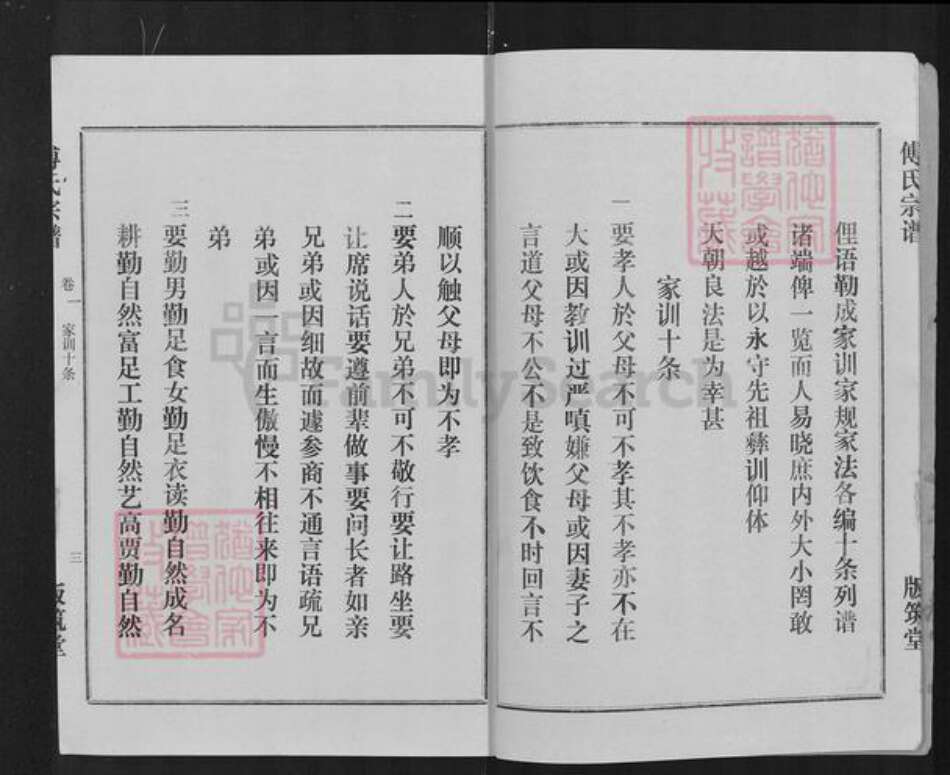 傅氏宗谱
版筑堂
俚语勒成家训家规家法各编十条列谱
诸端俾一览而人易晓庶内外大小罔敢
或越於以永守先祖彝训仰体
天朝良法是为幸甚
家训十条
一要孝人於父母不可不孝其不孝亦不在
大或因教训过严嗔嫌父母或因妻子之
言道父母不公不是致饮食不时回言不
顺以触父母即为不孝
二要弟人於兄弟不可不敬行要让路坐要
让席说话要遵前辈做事要问长者如亲
兄弟或因细故而遽参商不通言语疏兄
弟或因一言而生傲慢不相往来即为不
弟
三要勤男勤足食女勤足衣读勤自然成名
耕勤自然富足工勤自然艺高贾勤自然
卷一 家训十条 三
FamilySearch